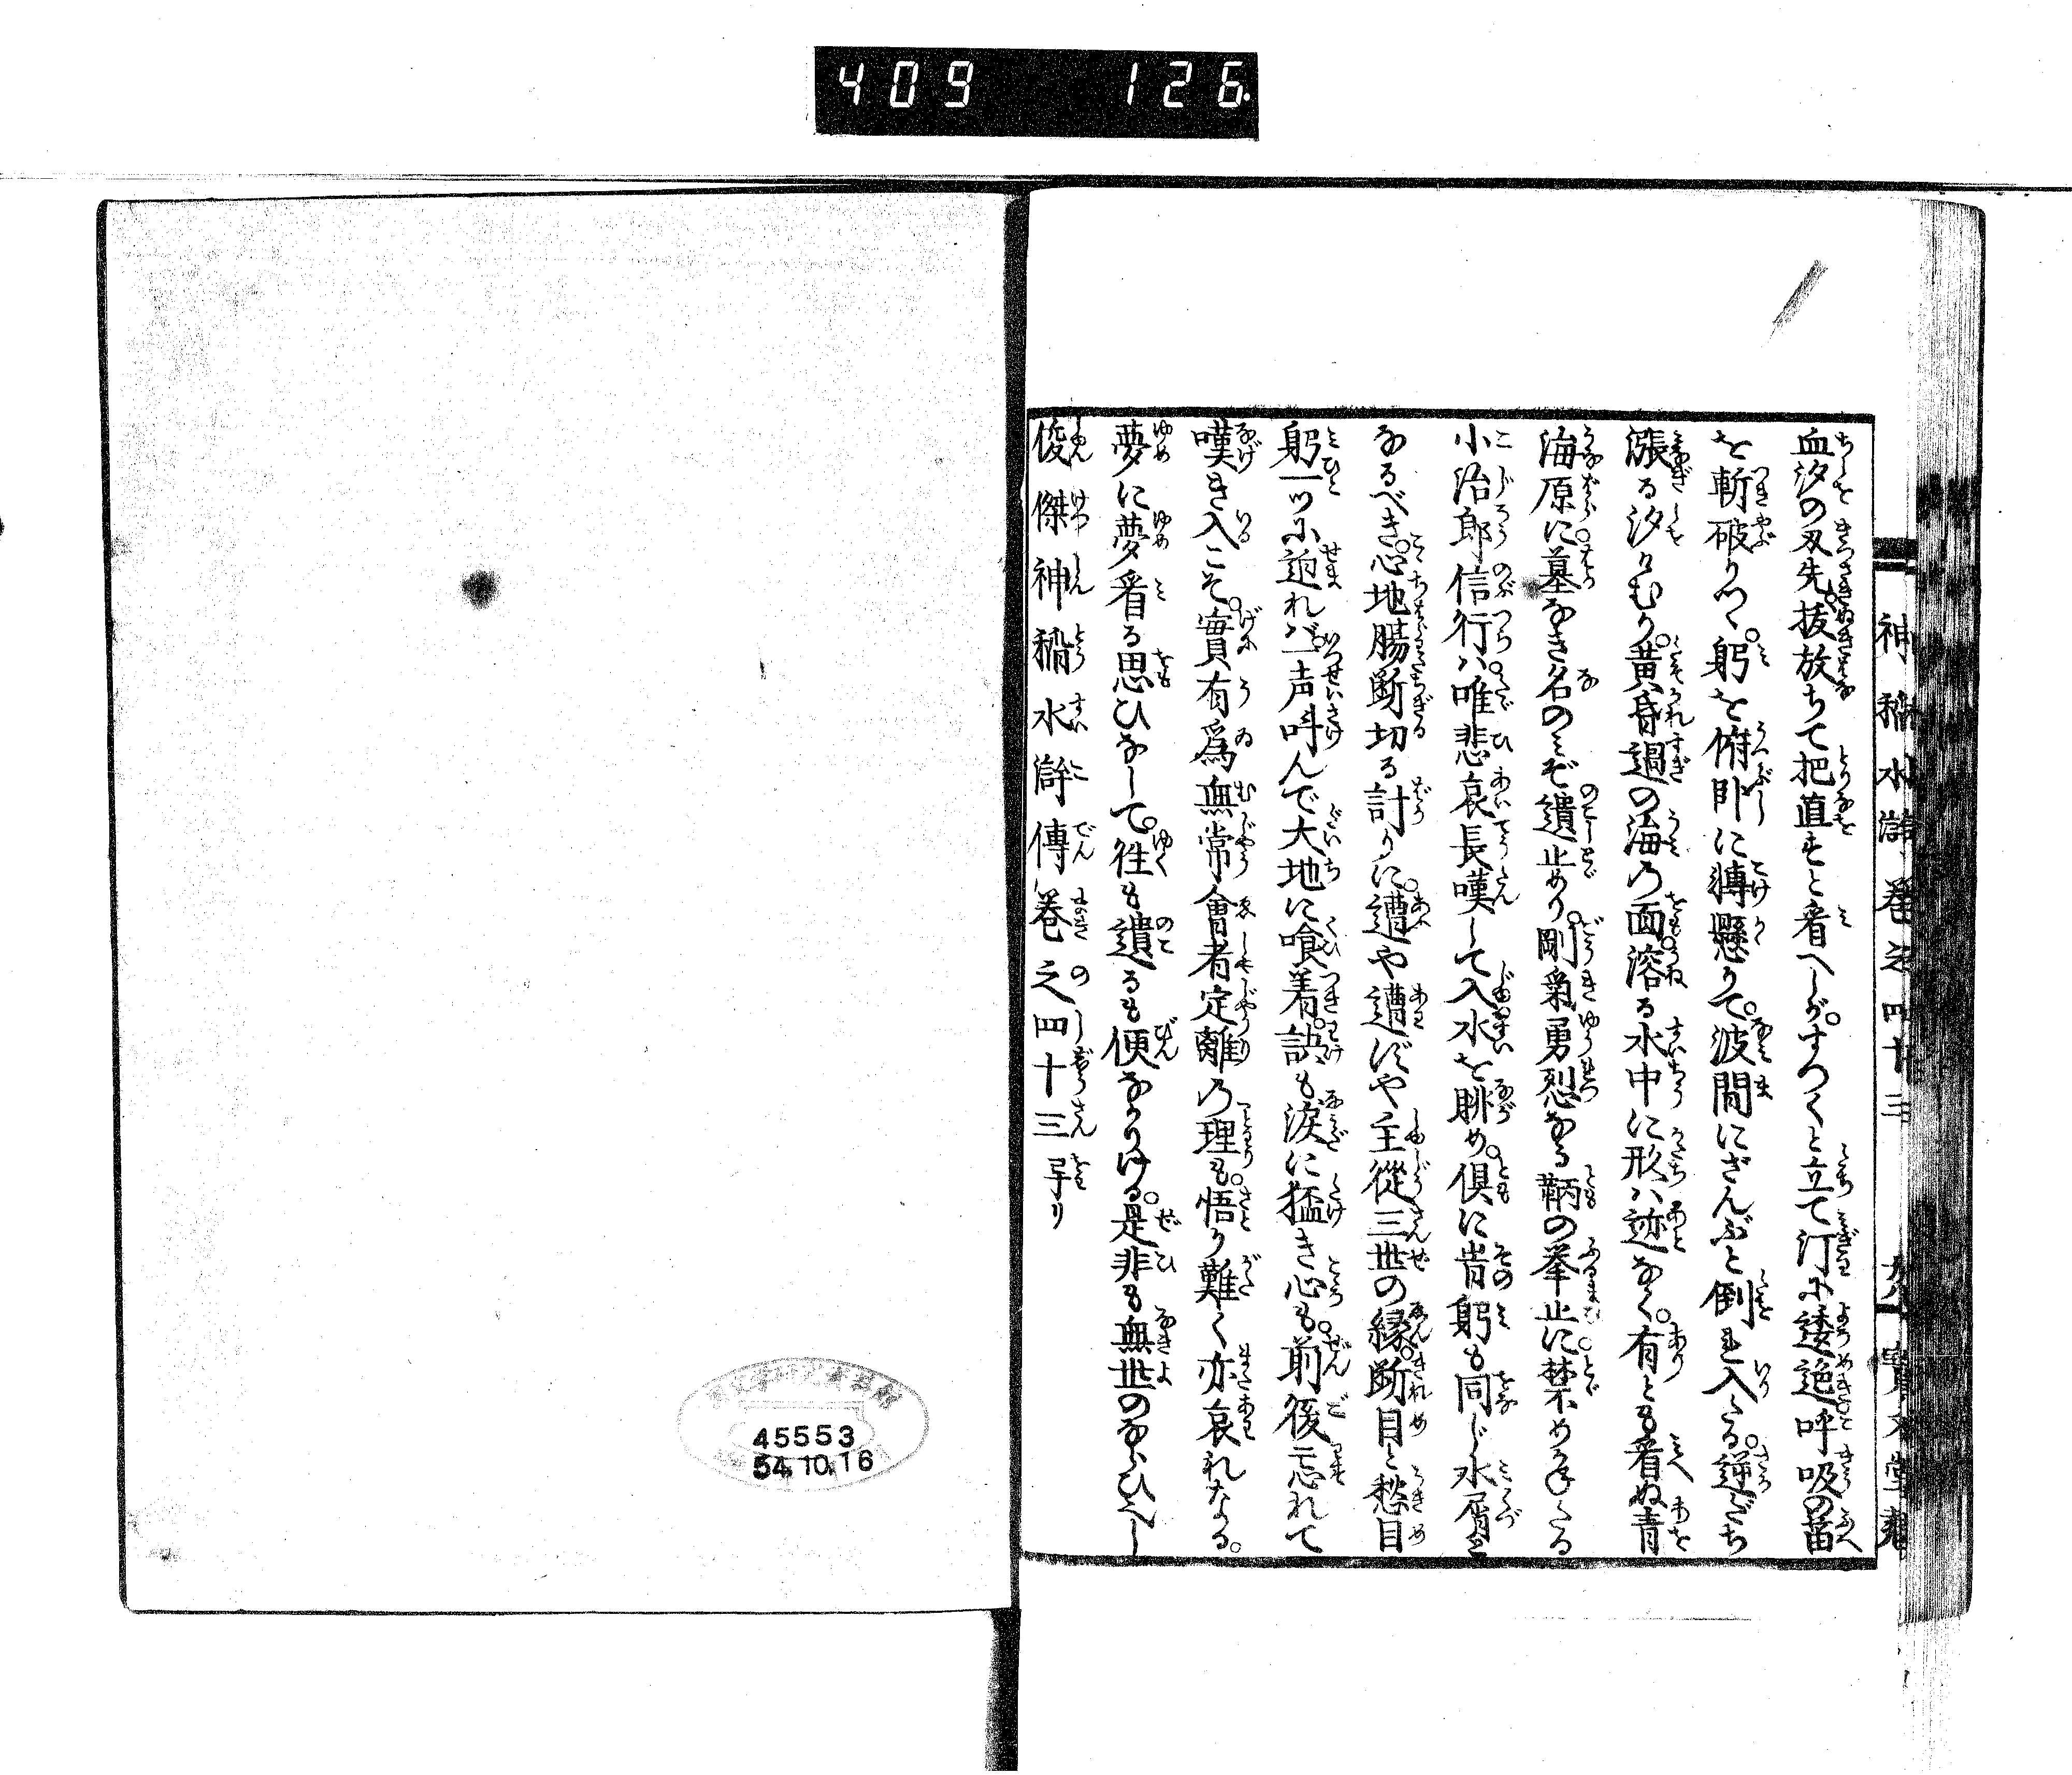 409 126
神稲水滸巻之四十三
血汐の刃先抜放ちて把直すと看へしが。すつくと立て汀に逶迤呼吸の笛
を斬破りつゝ。躬を俯卧に轉懸りて。波間にざんぶと倒れ入たる。逆だち
漲る汐けむり。黄昏過の海の面溶る水中に形ハ迹なく。有とも看ぬ青
海原に。墓なき名のミぞ遺止めり。剛氣勇烈なる鞆の挙止に。禁めかねたる
小治郎信行ハ。唯悲哀長嘆して入水を眺め。倶に肯躬も同じ水屑と
なるべき。心地腸断切る計りに。遭や遭ずや主從三世の縁。断目と愁目
躬一ツに迫れバ。一声叫んで大地に喰着。訣も涙に猛き心も。前後忘れて
嘆き入こそ。實有爲無常會者定離の理も。悟り難く亦哀れなる。
夢に夢看る思ひなして。徃も遺るも便なかりける。是非も無世のならひへし
俊傑神稲水滸傳巻之四十三 尾リ
45553
54.10.16